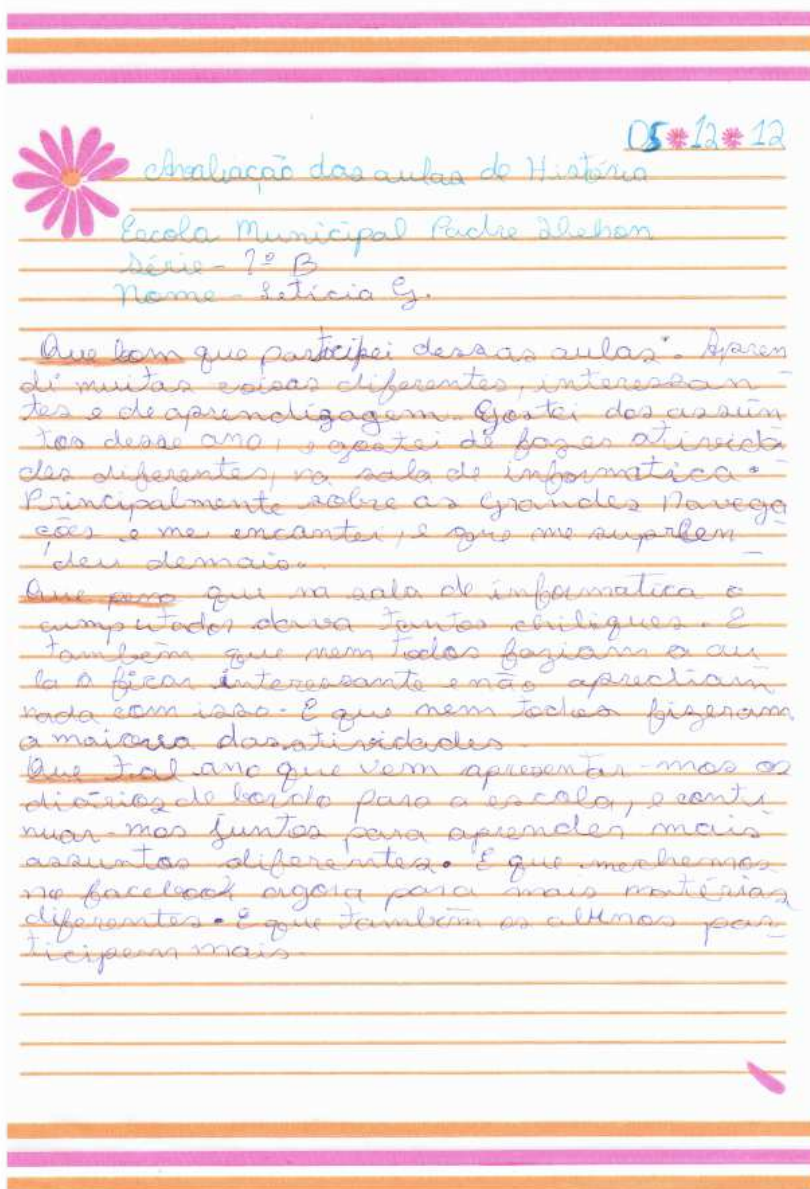 05*12*12
Avaliação das aulas de História
Escola Municipal Padre
Série - 7º B
Nome - Letícia G.
Que bom que participei dessas aulas. Apren
di muitas coisas diferentes, interessan
tes e de aprendizagem. Gostei dos assun
tos desse ano, e gostei de fazer ativida
des diferentes, na sala de informatica.
Principalmente sobre as Grandes Navega
ções e me encantei, e que me supreen
deu demais.
Que pena que na sala de informatica o
cumputador dava tantos chiliques. E
também que nem todos faziam a au
la ficar interessante e não aprediam
nada com isso. E que nem todos fizeram
a maioria das atividades.
Que tal ano que vem apresentar-mos os
diários de bordo para a escola, e conti
nuar-mos juntos para aprender mais
assuntos diferentes. E que mechemos
no facebook agora para mais matérias
diferentes. E que também os alunos par
ticipem mais.